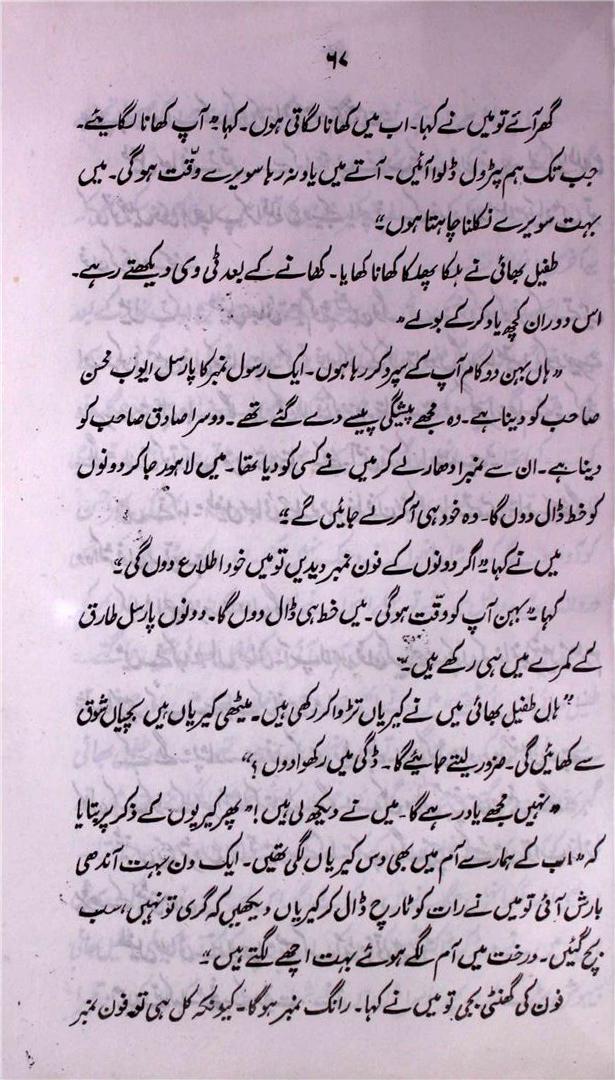 ۶۷
گھر آئے تو میں نے کہا۔ اب میں کھانا لگاتی ہوں۔ کہا "آپ کھانا لگایئے۔
جب تک ہم پیٹرول ڈلوا آئیں۔ آتے میں یاد نہ رہا سویرے دقّت ہوگی۔ میں
بہت سویرے نکلنا چاہتا ہوں"
طفیل بھائی نے ہلکا پھلکا کھانا کھایا۔ کھانے کے بعد ٹی وی دیکھتے رہے۔
اس دوران کچھ یاد کر کے بولے "
"ہاں بہن دو کام آپ کے سپرد کر رہا ہوں۔ ایک رسول نمبر کا پارسل ایوب محسن
صاحب کو دینا ہے۔ وہ مجھے پیشگی پیسے دے گئے تھے۔ دوسرا صادق صاحب کو
دینا ہے۔ ان سے نمبر ادھار لے کر میں نے کسی کو دیا تھا۔ میں لاہور جا کر دونوں
کو خط ڈال دوں گا۔ وہ خود ہی آ کر لے جائیں گے"
میں نے کہا "اگر دونوں کے فون نمبر دیدیں تو میں خود اطلاع دوں گی"
کہا "بہن آپ کو دقّت ہوگی۔ میں خط ہی ڈال دوں گا۔ دونوں پارسل طارق
کے کمرے میں ہی رکھے ہیں"
"ہاں طفیل بھائی میں نے کیریاں تڑوا کر رکھی ہیں۔ میٹھی کیریاں ہیں بچیاں شوق
سے کھائیں گی۔ ضرور لیتے جایئے گا۔ ڈگی میں رکھوا دوں؟"
"نہیں مجھے یاد رہے گا۔ میں نے دیکھ لی ہیں!" پھر کیریوں کے ذکر پر بتایا
کہ "اب کے ہمارے آم میں بھی دس کیریاں لگی تھیں۔ ایک دن بہت آندھی
بارش آئی تو میں نے رات کو ٹارچ ڈال کر کیریاں دیکھیں کہ گری تو نہیں، سب
بچ گئیں۔ درخت میں آم لگے ہوئے بہت اچھے لگتے ہیں"
فون کی گھنٹی بجی تو میں نے کہا۔ رانگ نمبر ہوگا۔ کیونکہ کل ہی تو فون نمبر